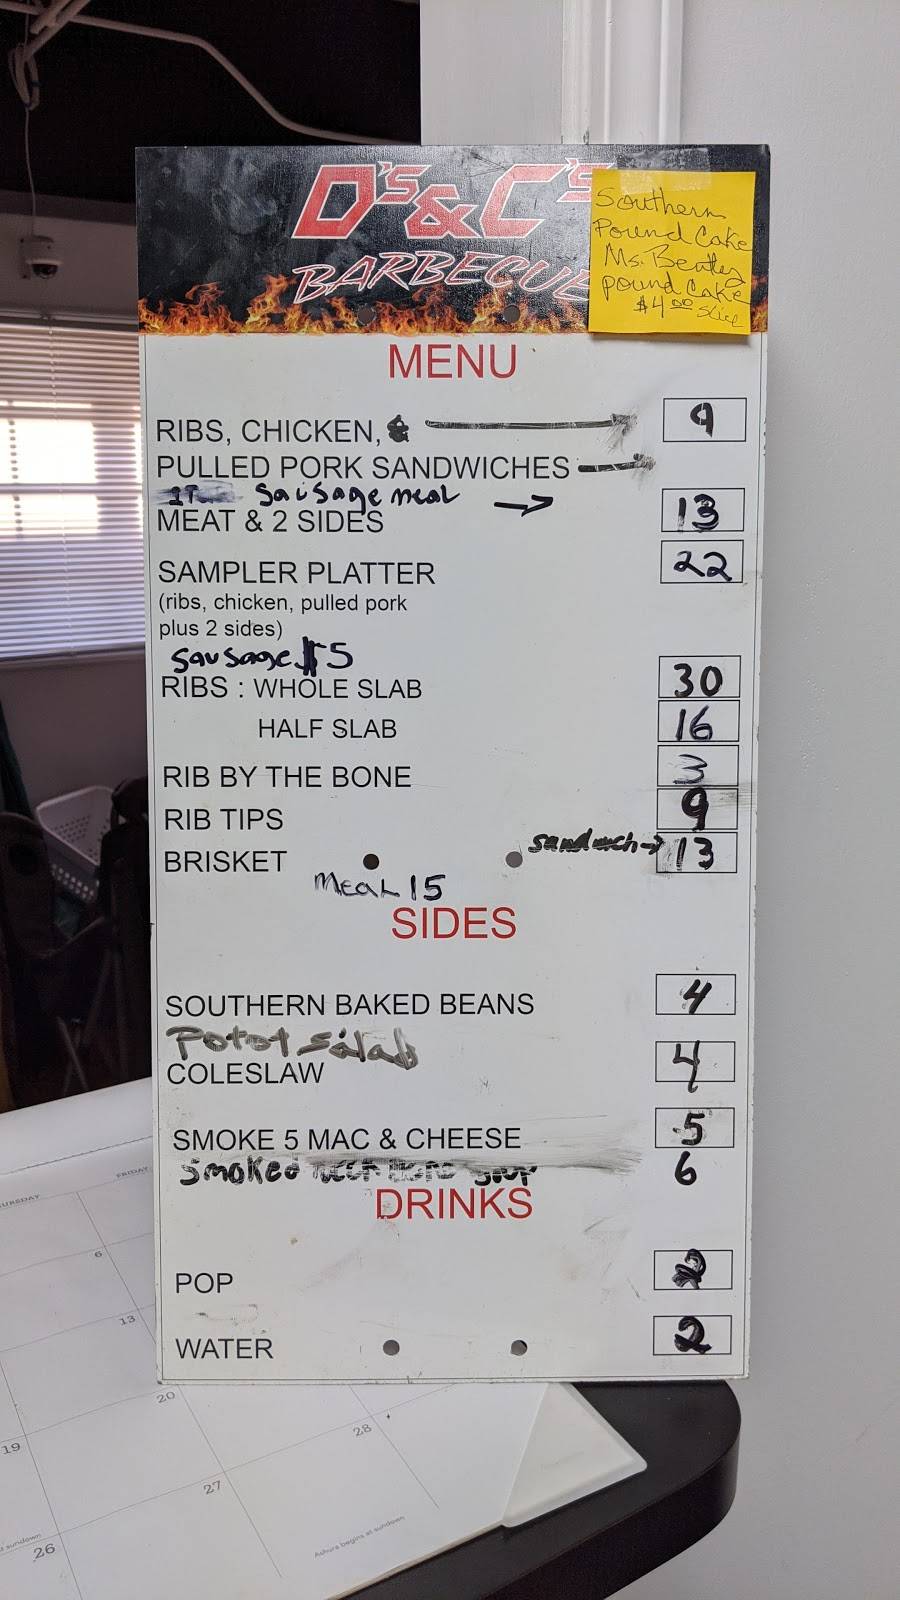 D's & C's
BARBECUE
Southern
Pound Cake
Ms. Beatley
pound Cake
$4.00 slice
MENU
RIBS, CHICKEN, & 9
PULLED PORK SANDWICHES
Sausage meal
MEAT & 2 SIDES 13
SAMPLER PLATTER 22
(ribs, chicken, pulled pork
plus 2 sides)
Sausage $5
RIBS : WHOLE SLAB 30
HALF SLAB 16
RIB BY THE BONE 3
RIB TIPS 9
BRISKET sandwich 13
MEAL 15
SIDES
SOUTHERN BAKED BEANS 4
Potot Salad
COLESLAW 4
SMOKE 5 MAC & CHEESE 5
Smoked 6
DRINKS
POP 2
WATER 2
THURSDAY
FRIDAY
6
13
20
19
28
27
26
at sundown
Ashura begins at sundown